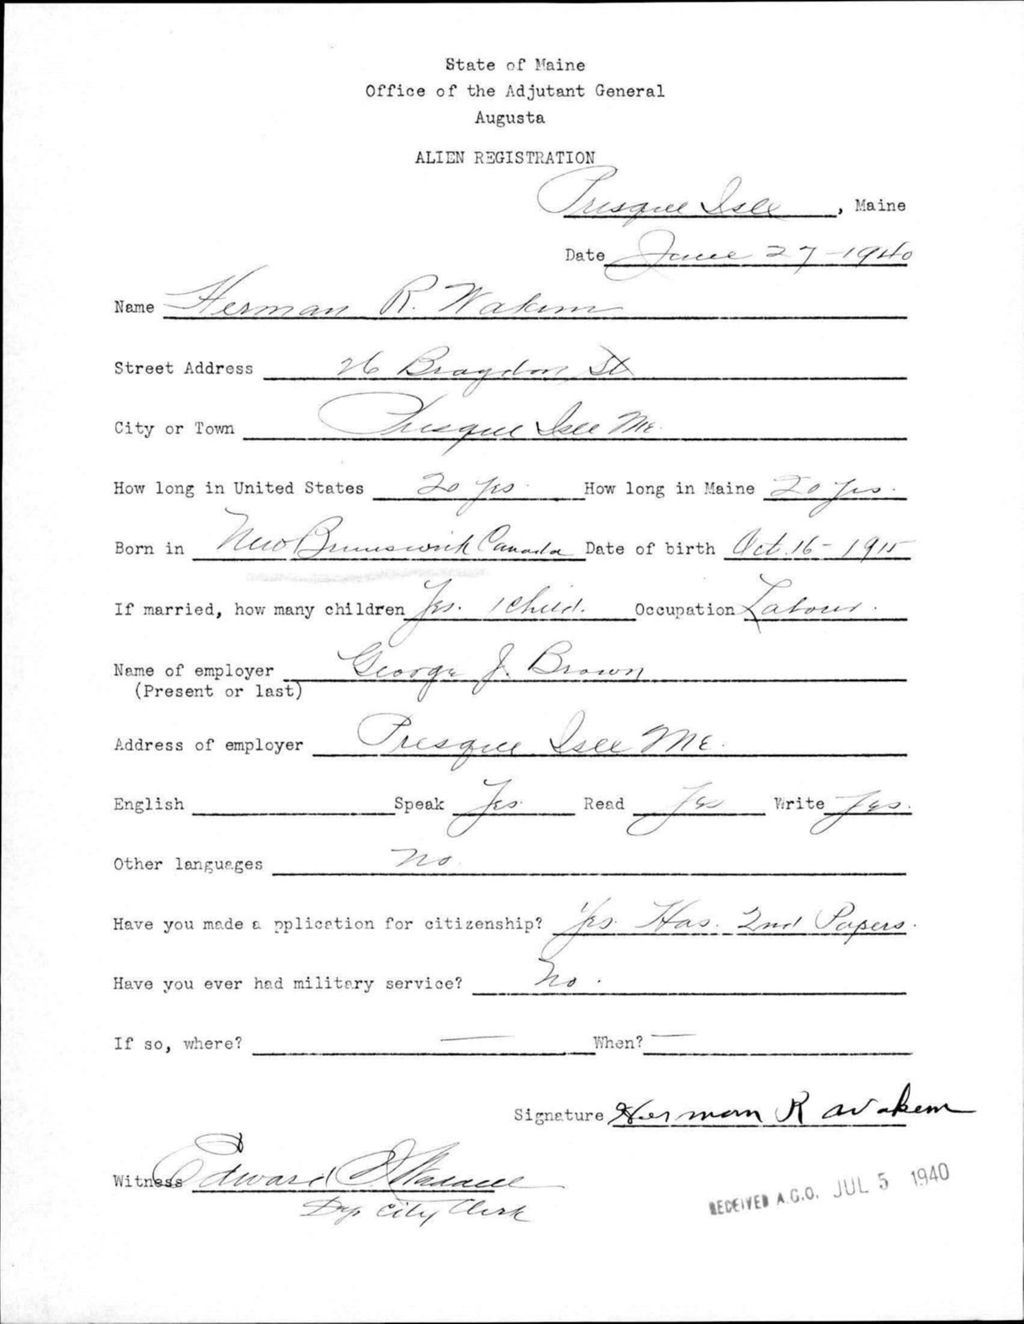 State of Maine
Office of the Adjutant General
Augusta
ALIEN REGISTRATION
Presque Isle, Maine
Date June 27-1940
Name Herman R. Wakem
Street Address 26 Bragdon St
City or Town Presque Isle Me.
How long in United States 20 yrs. How long in Maine 20 yrs.
Born in New Brunswick Canada Date of birth Oct. 16-1915
If married, how many children Yes. 1 Child. Occupation Labour.
Name of employer George J. Brown
(Present or last)
Address of employer Presque Isle Me.
English Speak Yes. Read Yes Write Yes.
Other languages No.
Have you made a pplication for citizenship? Yes. Has. 2nd Papers.
Have you ever had military service? No.
If so, where? — When? —
Signature Herman R Wakem
Witness Edward
Dep City Clerk
RECEIVED A.G.O. JUL 5 1940